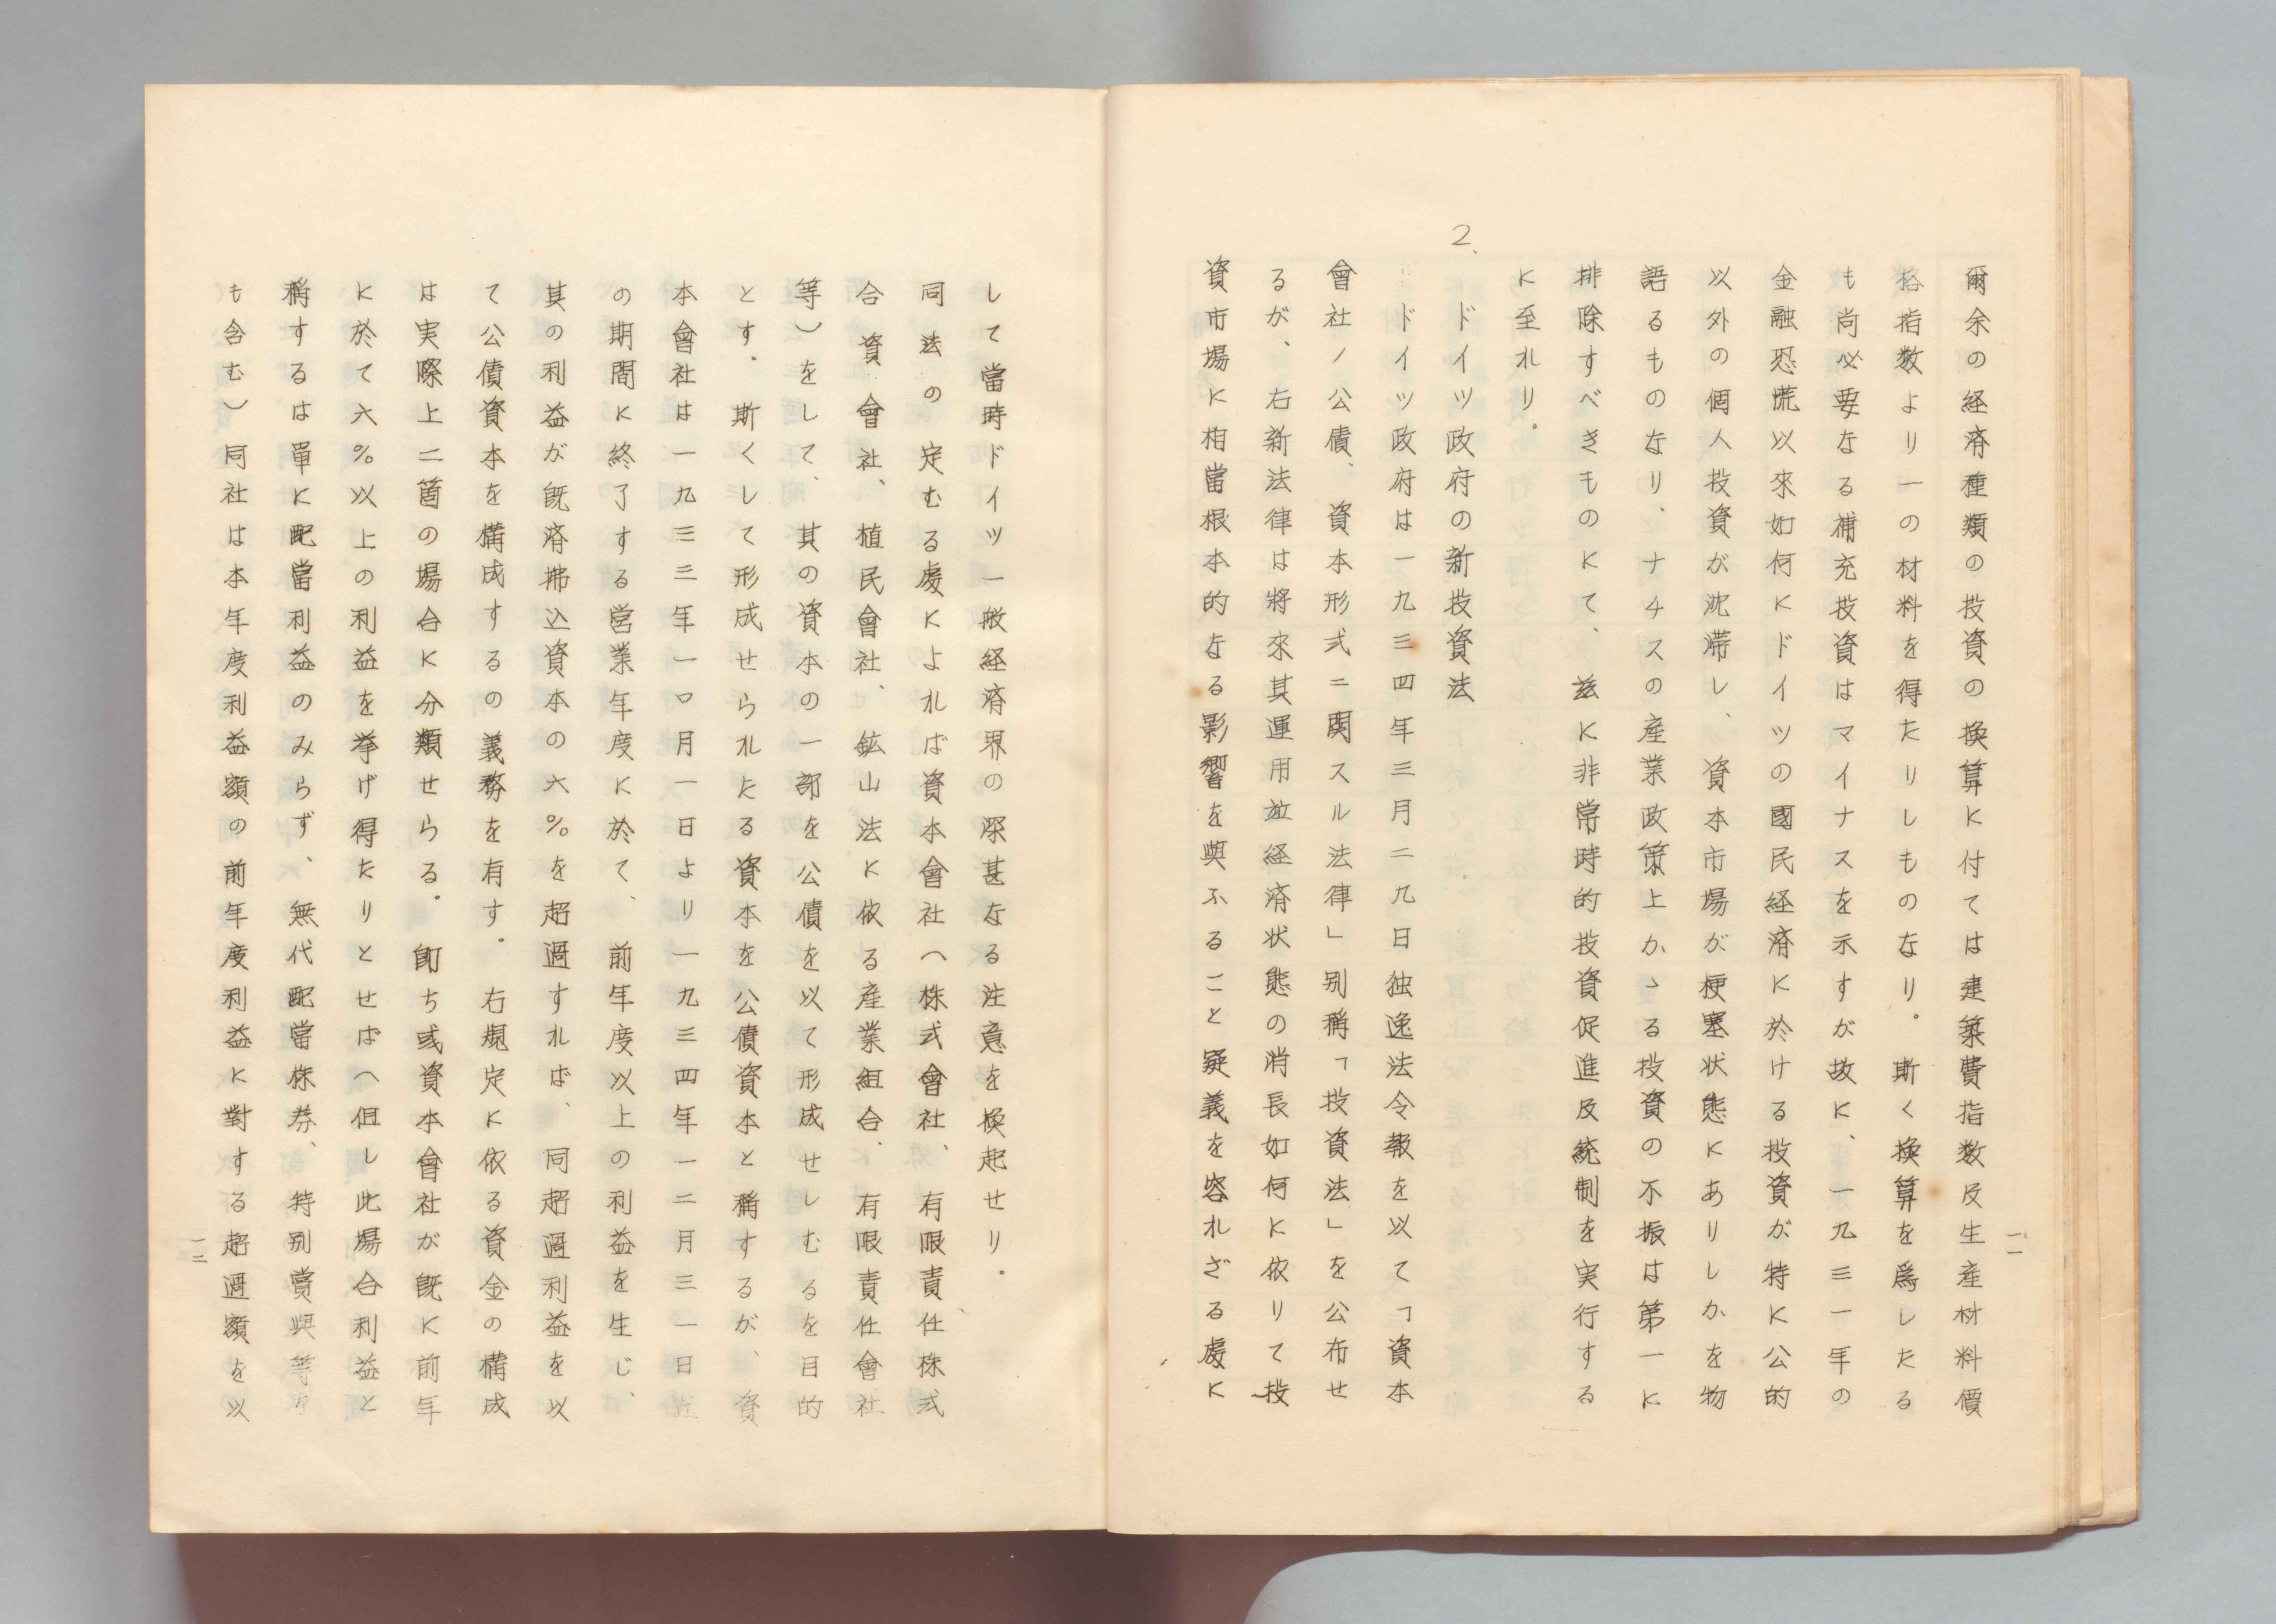 一一
爾余の経済種類の投資の換算に付ては建築費指数及生産材料價
格指数より一の材料を得たりしものなり。斯く換算を爲したる
も尚必要なる補充投資はマイナスを示すが故に、一九三一年の
金融恐慌以來如何にドイツの國民経済に於ける投資が特に公的
以外の個人投資が沈滞し、資本市場が梗塞状態にありしかを物
語るものなり、ナチスの産業政策上かゝる投資の不振は第一に
排除すべきものにて、玆に非常時的投資促進及統制を実行する
に至れり。
2、ドイツ政府の新投資法
ドイツ政府は一九三四年三月二九日独逸法令報を以て「資本
會社ノ公債、資本形式ニ関スル法律」別稱「投資法」を公布せ
るが、右新法律は將來其運用並経済状態の消長如何に依りて投
資市場に相當根本的なる影響を與ふること疑義を容れざる處に
して當時ドイツ一般経済界の深甚なる注意を換起せり.
同法の定むる處によれば資本會社（株式會社、有限責任株式
合資會社、植民會社、鉱山法に依る産業組合、有限責任會社
等）をして、其の資本の一部を公債を以て形成せしむるを目的
とす.斯くして形成せられたる資本を公債資本と稱するが、資
本會社は一九三三年一〇月一日より一九三四年一二月三一日迄
の期間に終了する営業年度に於て、前年度以上の利益を生じ、
其の利益が既済拂込資本の六％を超過すれば、同超過利益を以
て公債資本を構成するの義務を有す。右規定に依る資金の構成
は実際上二箇の場合に分類せらる。卽ち或資本會社が既に前年
に於て六％以上の利益を挙げ得たりとせば（但し此場合利益と
稱するは單に配當利益のみらず、無代配當株券、特別賞與等を
も含む）同社は本年度利益額の前年度利益に對する超過額を以
一二